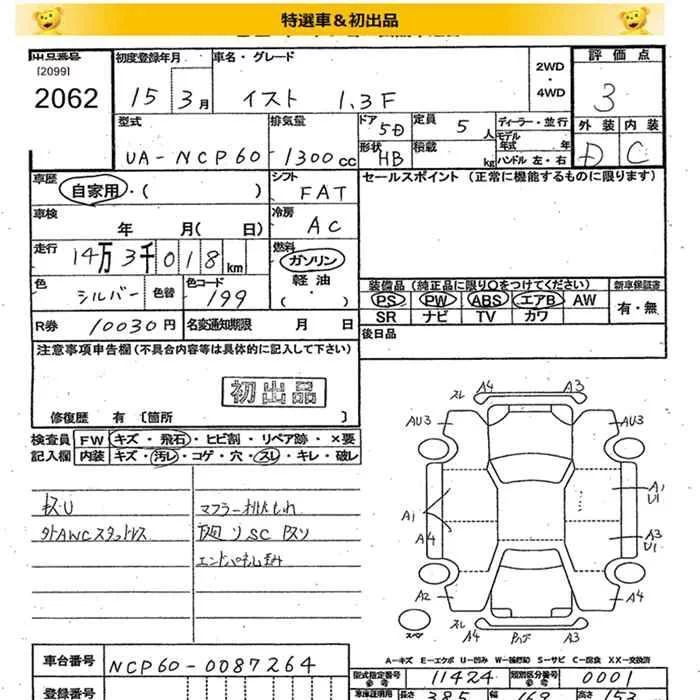 特選車&初出品
出品番号
[2099]
2062
初度登録年月
15 3月
車名・グレード
イスト 1.3F
2WD
・
4WD
評価点
3
外装 内装
D C
型式
UA-NCP60
排気量
1300cc
ドア
5D
定員
5人
ディーラー・並行
モデル
年式 年
形状
HB
積載
kg
ハンドル 左・右
車歴
自家用・( )
シフト
FAT
セールスポイント (正常に機能するものに限ります)
車検
年 月( 日)
冷房
AC
走行
14万3千018km
燃料
ガソリン
軽油
・( )
色
シルバー
色替
色コード
199
装備品 (純正品に限り○をつけてください)
PS PW ABS エアB AW
SR ナビ TV カワ
新車保証書
有・無
R券 10030円
名変通知期限 月 日
後日品
注意事項申告欄 (不具合内容等は具体的に記入して下さい)
初出品
修復歴 有 〔箇所 〕
検査員
記入欄
FW キズ・飛石・ヒビ割・リペア跡・×要
内装 キズ・汚レ・コゲ・穴・スレ・キレ・破レ
エンドパネル歪み
スレ A4 A3
AU3 AU3
A1
U1
A1
A4
A3
U1
A2 A4
スレ
A4 A3
スペア
A-キズ E-エクボ U-凹み W-補修跡 S-サビ C-腐食 XX-交換済
車台番号
NCP60-0087264
型式指定番号
参考
11424
類別区分番号
参考
0001
登録番号
車庫証明用
長さ 385 幅 169 高さ 153